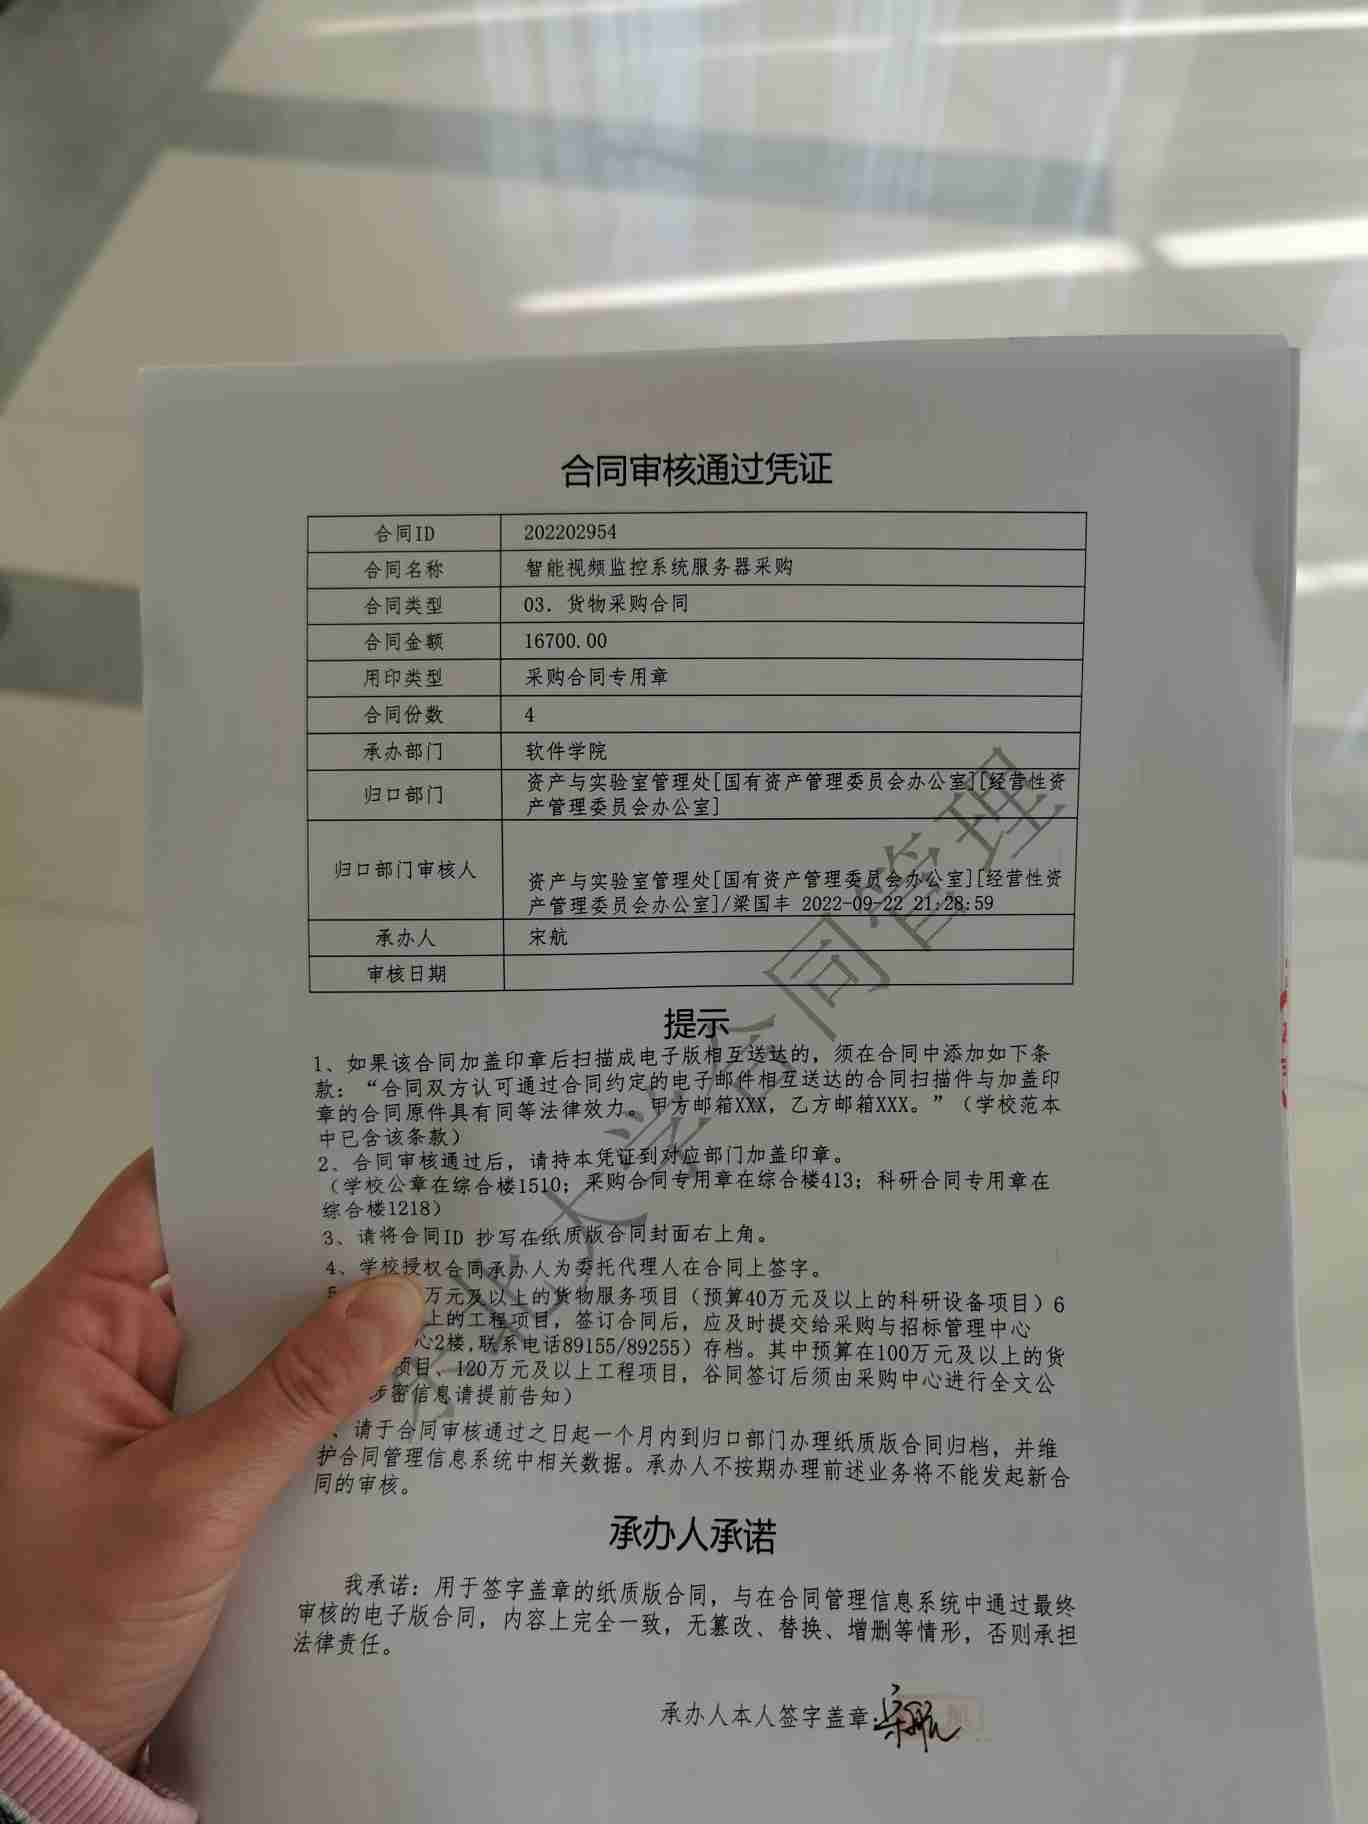 合同审核通过凭证
合同ID 202202954
合同名称 智能视频监控系统服务器采购
合同类型 03. 货物采购合同
合同金额 16700.00
用印类型 采购合同专用章
合同份数 4
承办部门 软件学院
归口部门 资产与实验室管理处[国有资产管理委员会办公室][经营性资
产管理委员会办公室]
归口部门审核人 资产与实验室管理处[国有资产管理委员会办公室][经营性资
产管理委员会办公室]/梁国丰 2022-09-22 21:28:59
承办人 宋航
审核日期
提示
1、如果该合同加盖印章后扫描成电子版相互送达的，须在合同中添加如下条
款：“合同双方认可通过合同约定的电子邮件相互送达的合同扫描件与加盖印
章的合同原件具有同等法律效力。甲方邮箱XXX，乙方邮箱XXX。”（学校范本
中已含该条款）
2、合同审核通过后，请持本凭证到对应部门加盖印章。
（学校公章在综合楼1510；采购合同专用章在综合楼413；科研合同专用章在
综合楼1218）
3、请将合同ID 抄写在纸质版合同封面右上角。
4、学校授权合同承办人为委托代理人在合同上签字。
万元及以上的货物服务项目（预算40万元及以上的科研设备项目）6
上的工程项目，签订合同后，应及时提交给采购与招标管理中心
心2楼,联系电话89155/89255）存档。其中预算在100万元及以上的货
项目、120万元及以上工程项目，合同签订后须由采购中心进行全文公
涉密信息请提前告知）
、请于合同审核通过之日起一个月内到归口部门办理纸质版合同归档，并维
护合同管理信息系统中相关数据。承办人不按期办理前述业务将不能发起新合
同的审核。
承办人承诺
我承诺：用于签字盖章的纸质版合同，与在合同管理信息系统中通过最终
审核的电子版合同，内容上完全一致，无篡改、替换、增删等情形，否则承担
法律责任。
承办人本人签字盖章：宋航
北大学合同管理